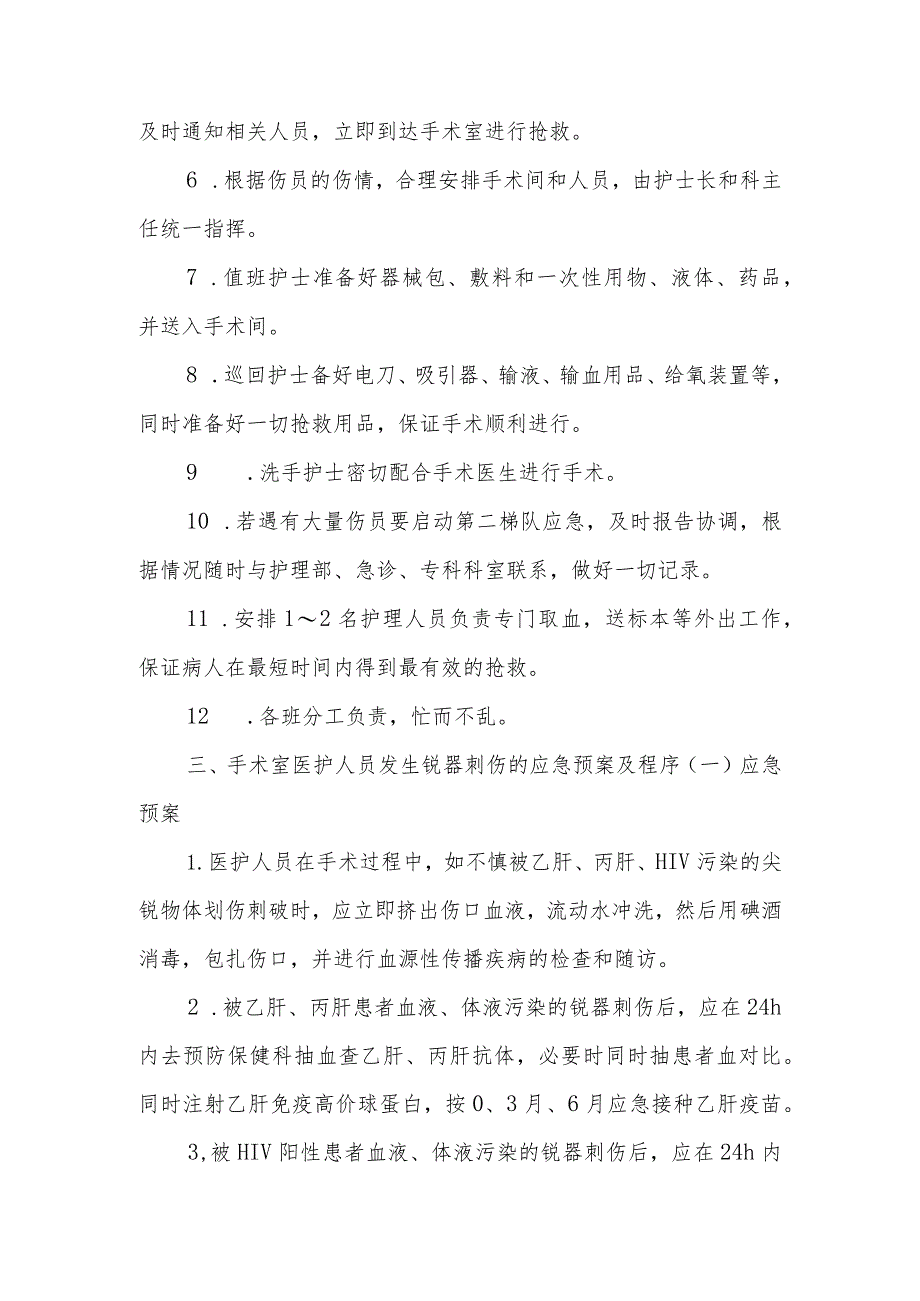 及时通知相关人员，立即到达手术室进行抢救。
6 .根据伤员的伤情，合理安排手术间和人员，由护士长和科主
任统一指挥。
7 .值班护士准备好器械包、敷料和一次性用物、液体、药品，
并送入手术间。
8 .巡回护士备好电刀、吸引器、输液、输血用品、给氧装置等，
同时准备好一切抢救用品，保证手术顺利进行。
9 .洗手护士密切配合手术医生进行手术。
10 .若遇有大量伤员要启动第二梯队应急，及时报告协调，根
据情况随时与护理部、急诊、专科科室联系，做好一切记录。
11 .安排1～2名护理人员负责专门取血，送标本等外出工作，
保证病人在最短时间内得到最有效的抢救。
12 .各班分工负责，忙而不乱。
三、手术室医护人员发生锐器刺伤的应急预案及程序（一）应急
预案
1.医护人员在手术过程中，如不慎被乙肝、丙肝、HIV污染的尖
锐物体划伤刺破时，应立即挤出伤口血液，流动水冲洗，然后用碘酒
消毒，包扎伤口，并进行血源性传播疾病的检查和随访。
2 .被乙肝、丙肝患者血液、体液污染的锐器刺伤后，应在24h
内去预防保健科抽血查乙肝、丙肝抗体，必要时同时抽患者血对比。
同时注射乙肝免疫高价球蛋白，按0、3月、6月应急接种乙肝疫苗。
3,被HIV阳性患者血液、体液污染的锐器刺伤后，应在24h内